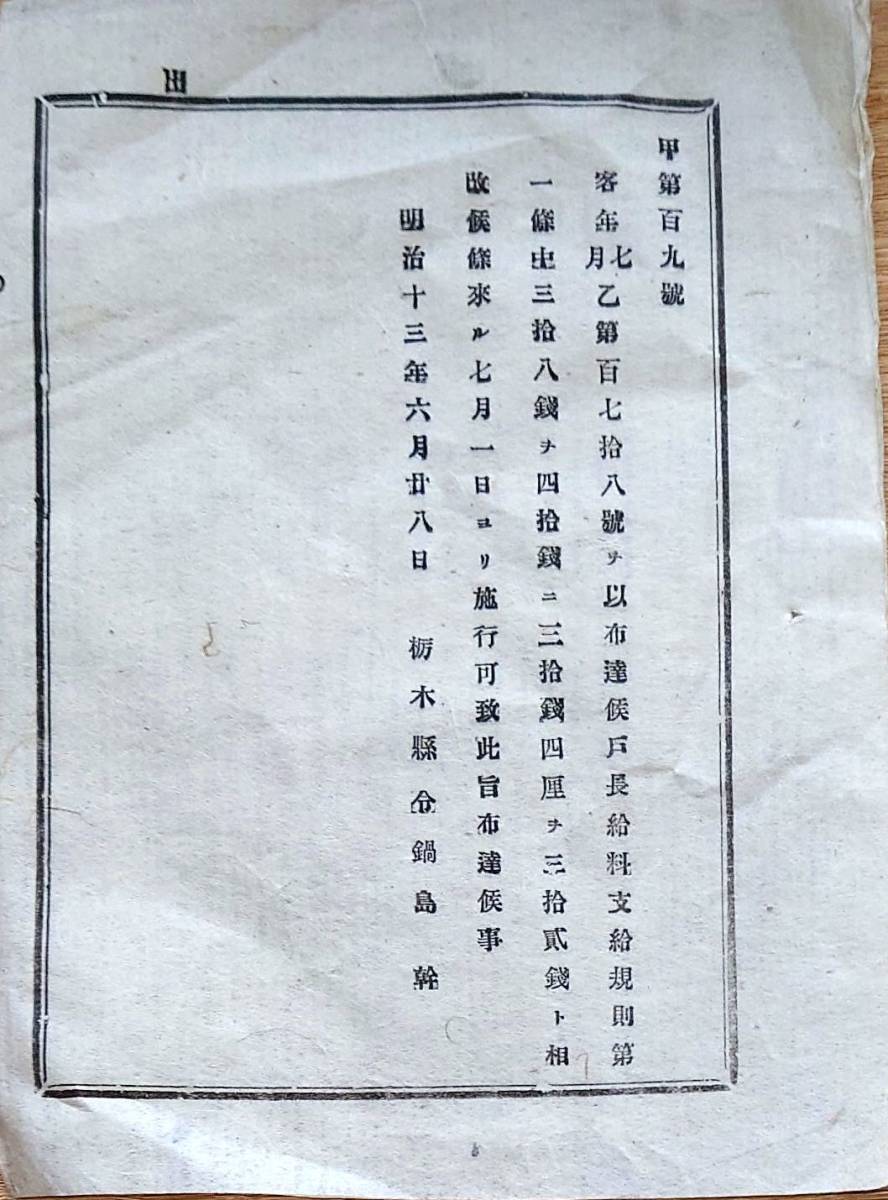 甲第百九號
客年七月乙第百七拾八號ヲ以布達候戸長給料支給規則第
一條中三拾八錢ヲ四拾錢ニ三拾錢四厘ヲ三拾貳錢ト相
改候條來ル七月一日ヨリ施行可致此旨布達候事
明治十三年六月廿八日 栃木縣令鍋島 幹